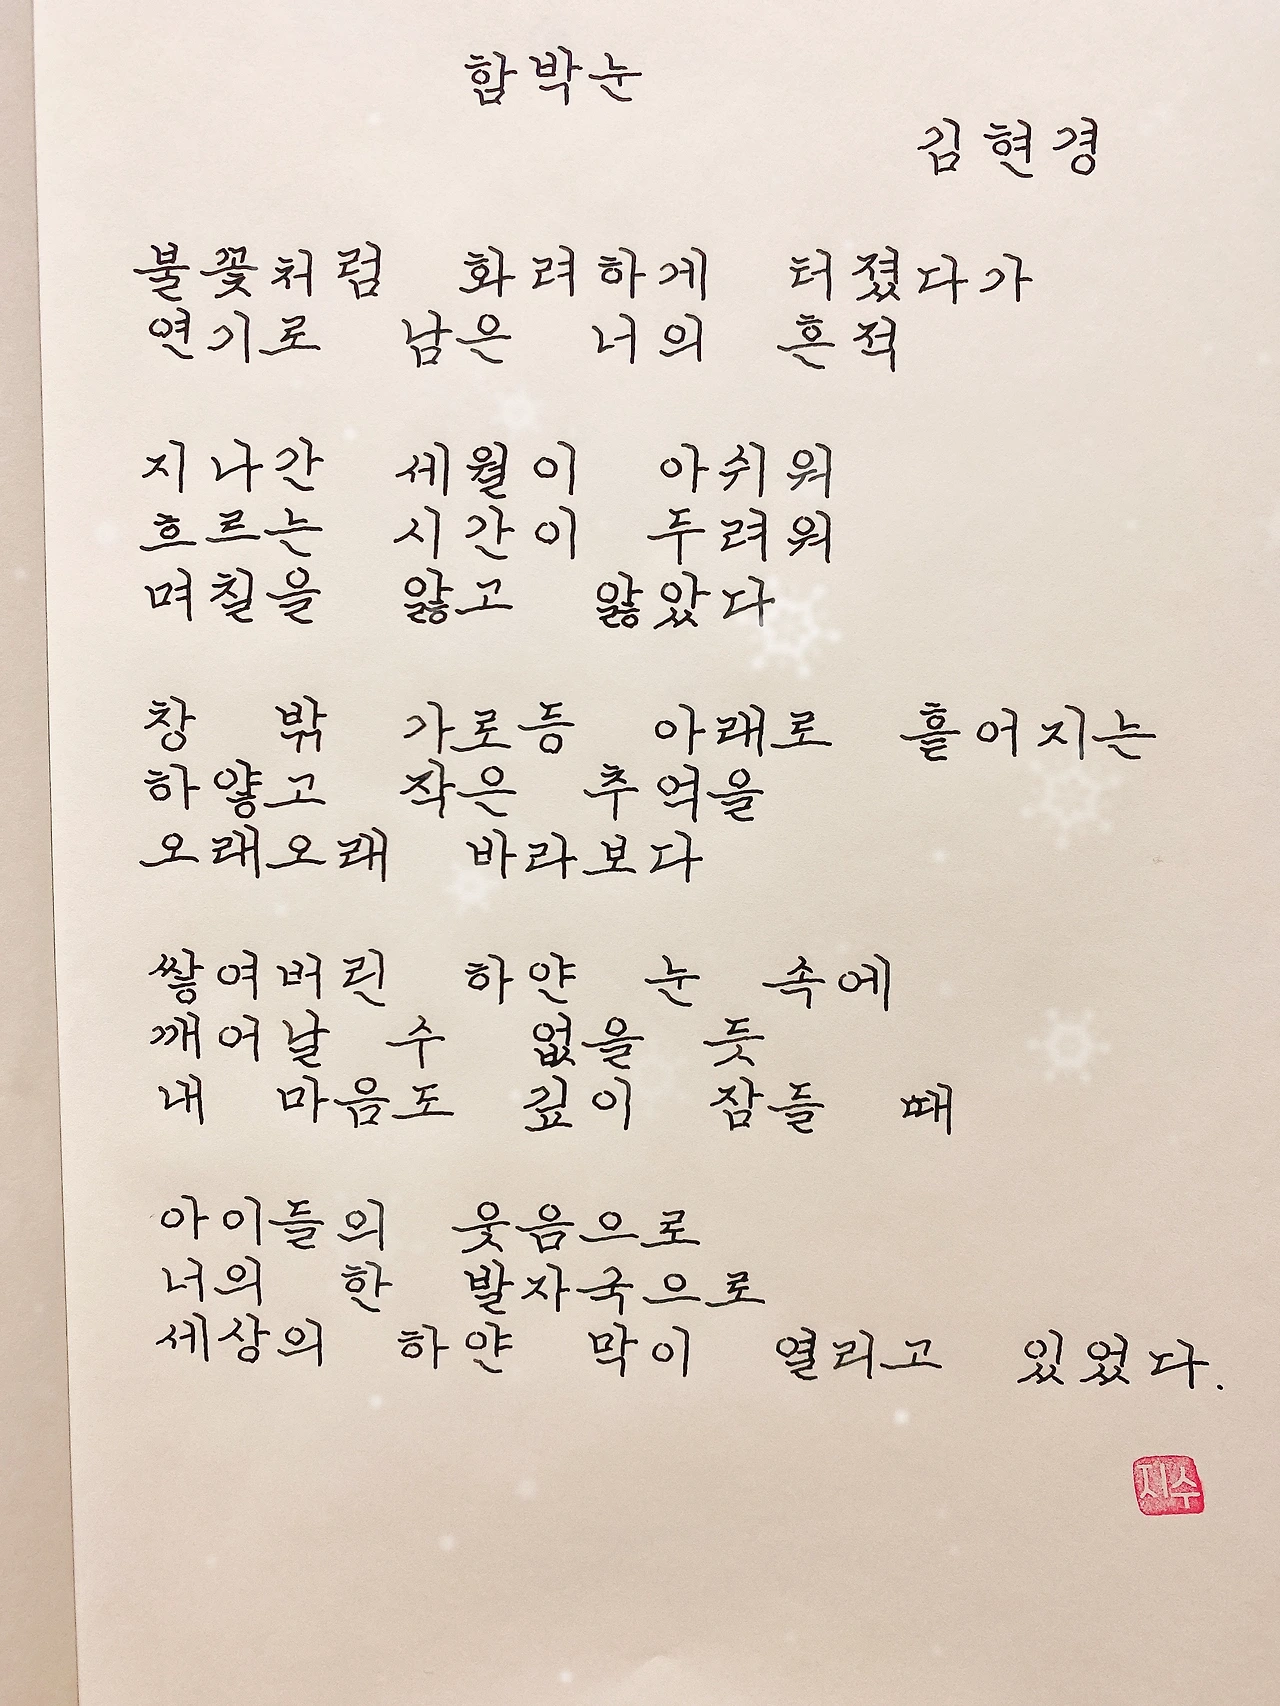 함박눈
김현경
불꽃처럼 화려하게 터졌다가
연기로 남은 너의 흔적
지나간 세월이 아쉬워
흐르는 시간이 두려워
며칠을 앓고 앓았다
창 밖 가로등 아래로 흩어지는
하얗고 작은 추억을
오래오래 바라보다
쌓여버린 하얀 눈 속에
깨어날 수 없을 듯
내 마음도 깊이 잠들 때
아이들의 웃음으로
너의 한 발자국으로
세상의 하얀 막이 열리고 있었다.
지수